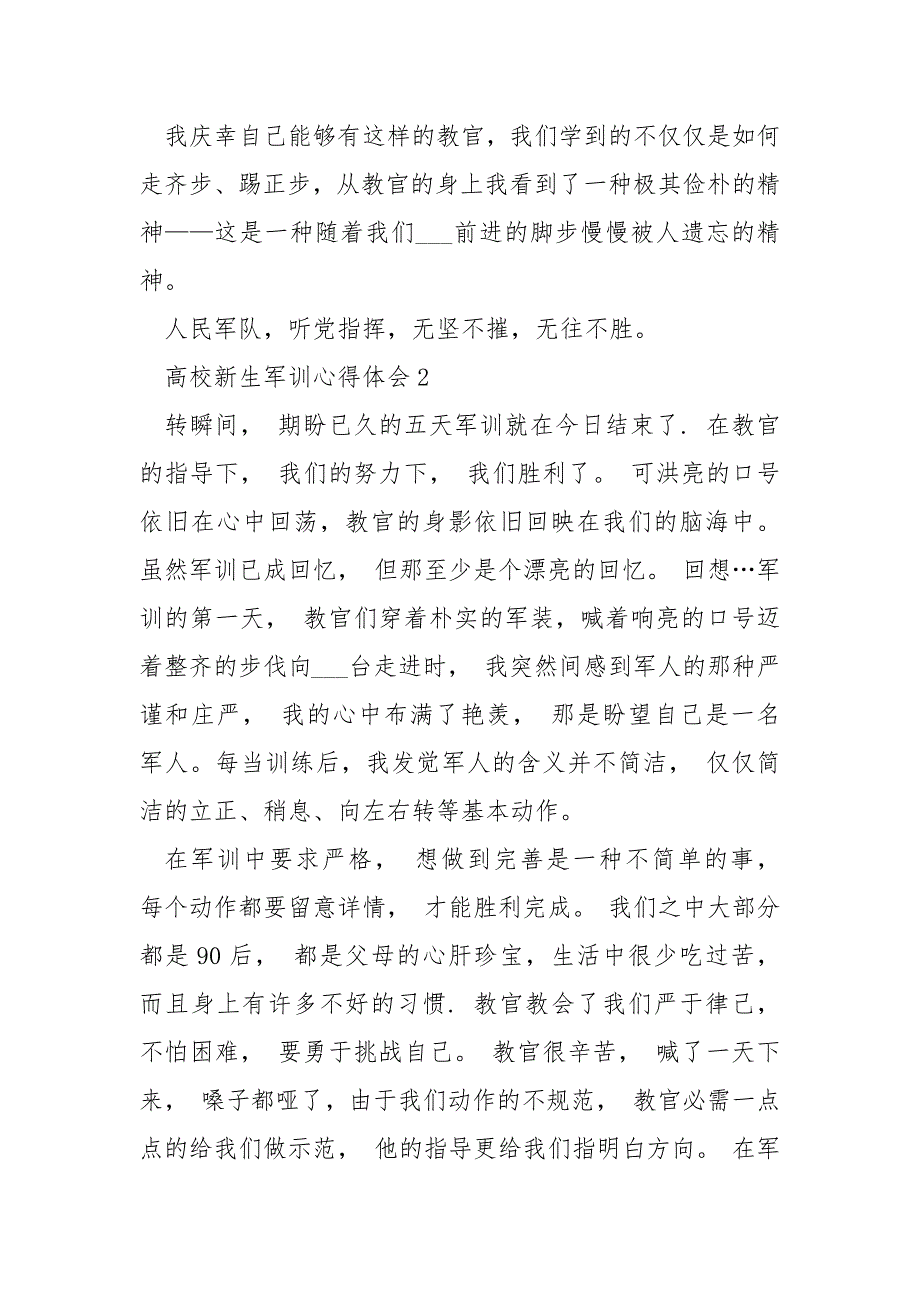 我庆幸自己能够有这样的教官，我们学到的不仅仅是如何
走齐步、踢正步，从教官的身上我看到了一种极其俭朴的精
神——这是一种随着我们___前进的脚步慢慢被人遗忘的精
神。
人民军队，听党指挥，无坚不摧，无往不胜。
高校新生军训心得体会 2
转瞬间， 期盼已久的五天军训就在今日结束了. 在教官
的指导下， 我们的努力下， 我们胜利了。 可洪亮的口号
依旧在心中回荡，教官的身影依旧回映在我们的脑海中。
虽然军训已成回忆， 但那至少是个漂亮的回忆。 回想…军
训的第一天， 教官们穿着朴实的军装，喊着响亮的口号迈
着整齐的步伐向___台走进时， 我突然间感到军人的那种严
谨和庄严， 我的心中布满了艳羡， 那是盼望自己是一名
军人。每当训练后，我发觉军人的含义并不简洁， 仅仅简
洁的立正、稍息、向左右转等基本动作。
在军训中要求严格， 想做到完善是一种不简单的事，
每个动作都要留意详情， 才能胜利完成。 我们之中大部分
都是 90 后， 都是父母的心肝珍宝，生活中很少吃过苦，
而且身上有许多不好的习惯. 教官教会了我们严于律己，
不怕困难， 要勇于挑战自己。 教官很辛苦， 喊了一天下
来， 嗓子都哑了，由于我们动作的不规范， 教官必需一点
点的给我们做示范， 他的指导更给我们指明白方向。 在军